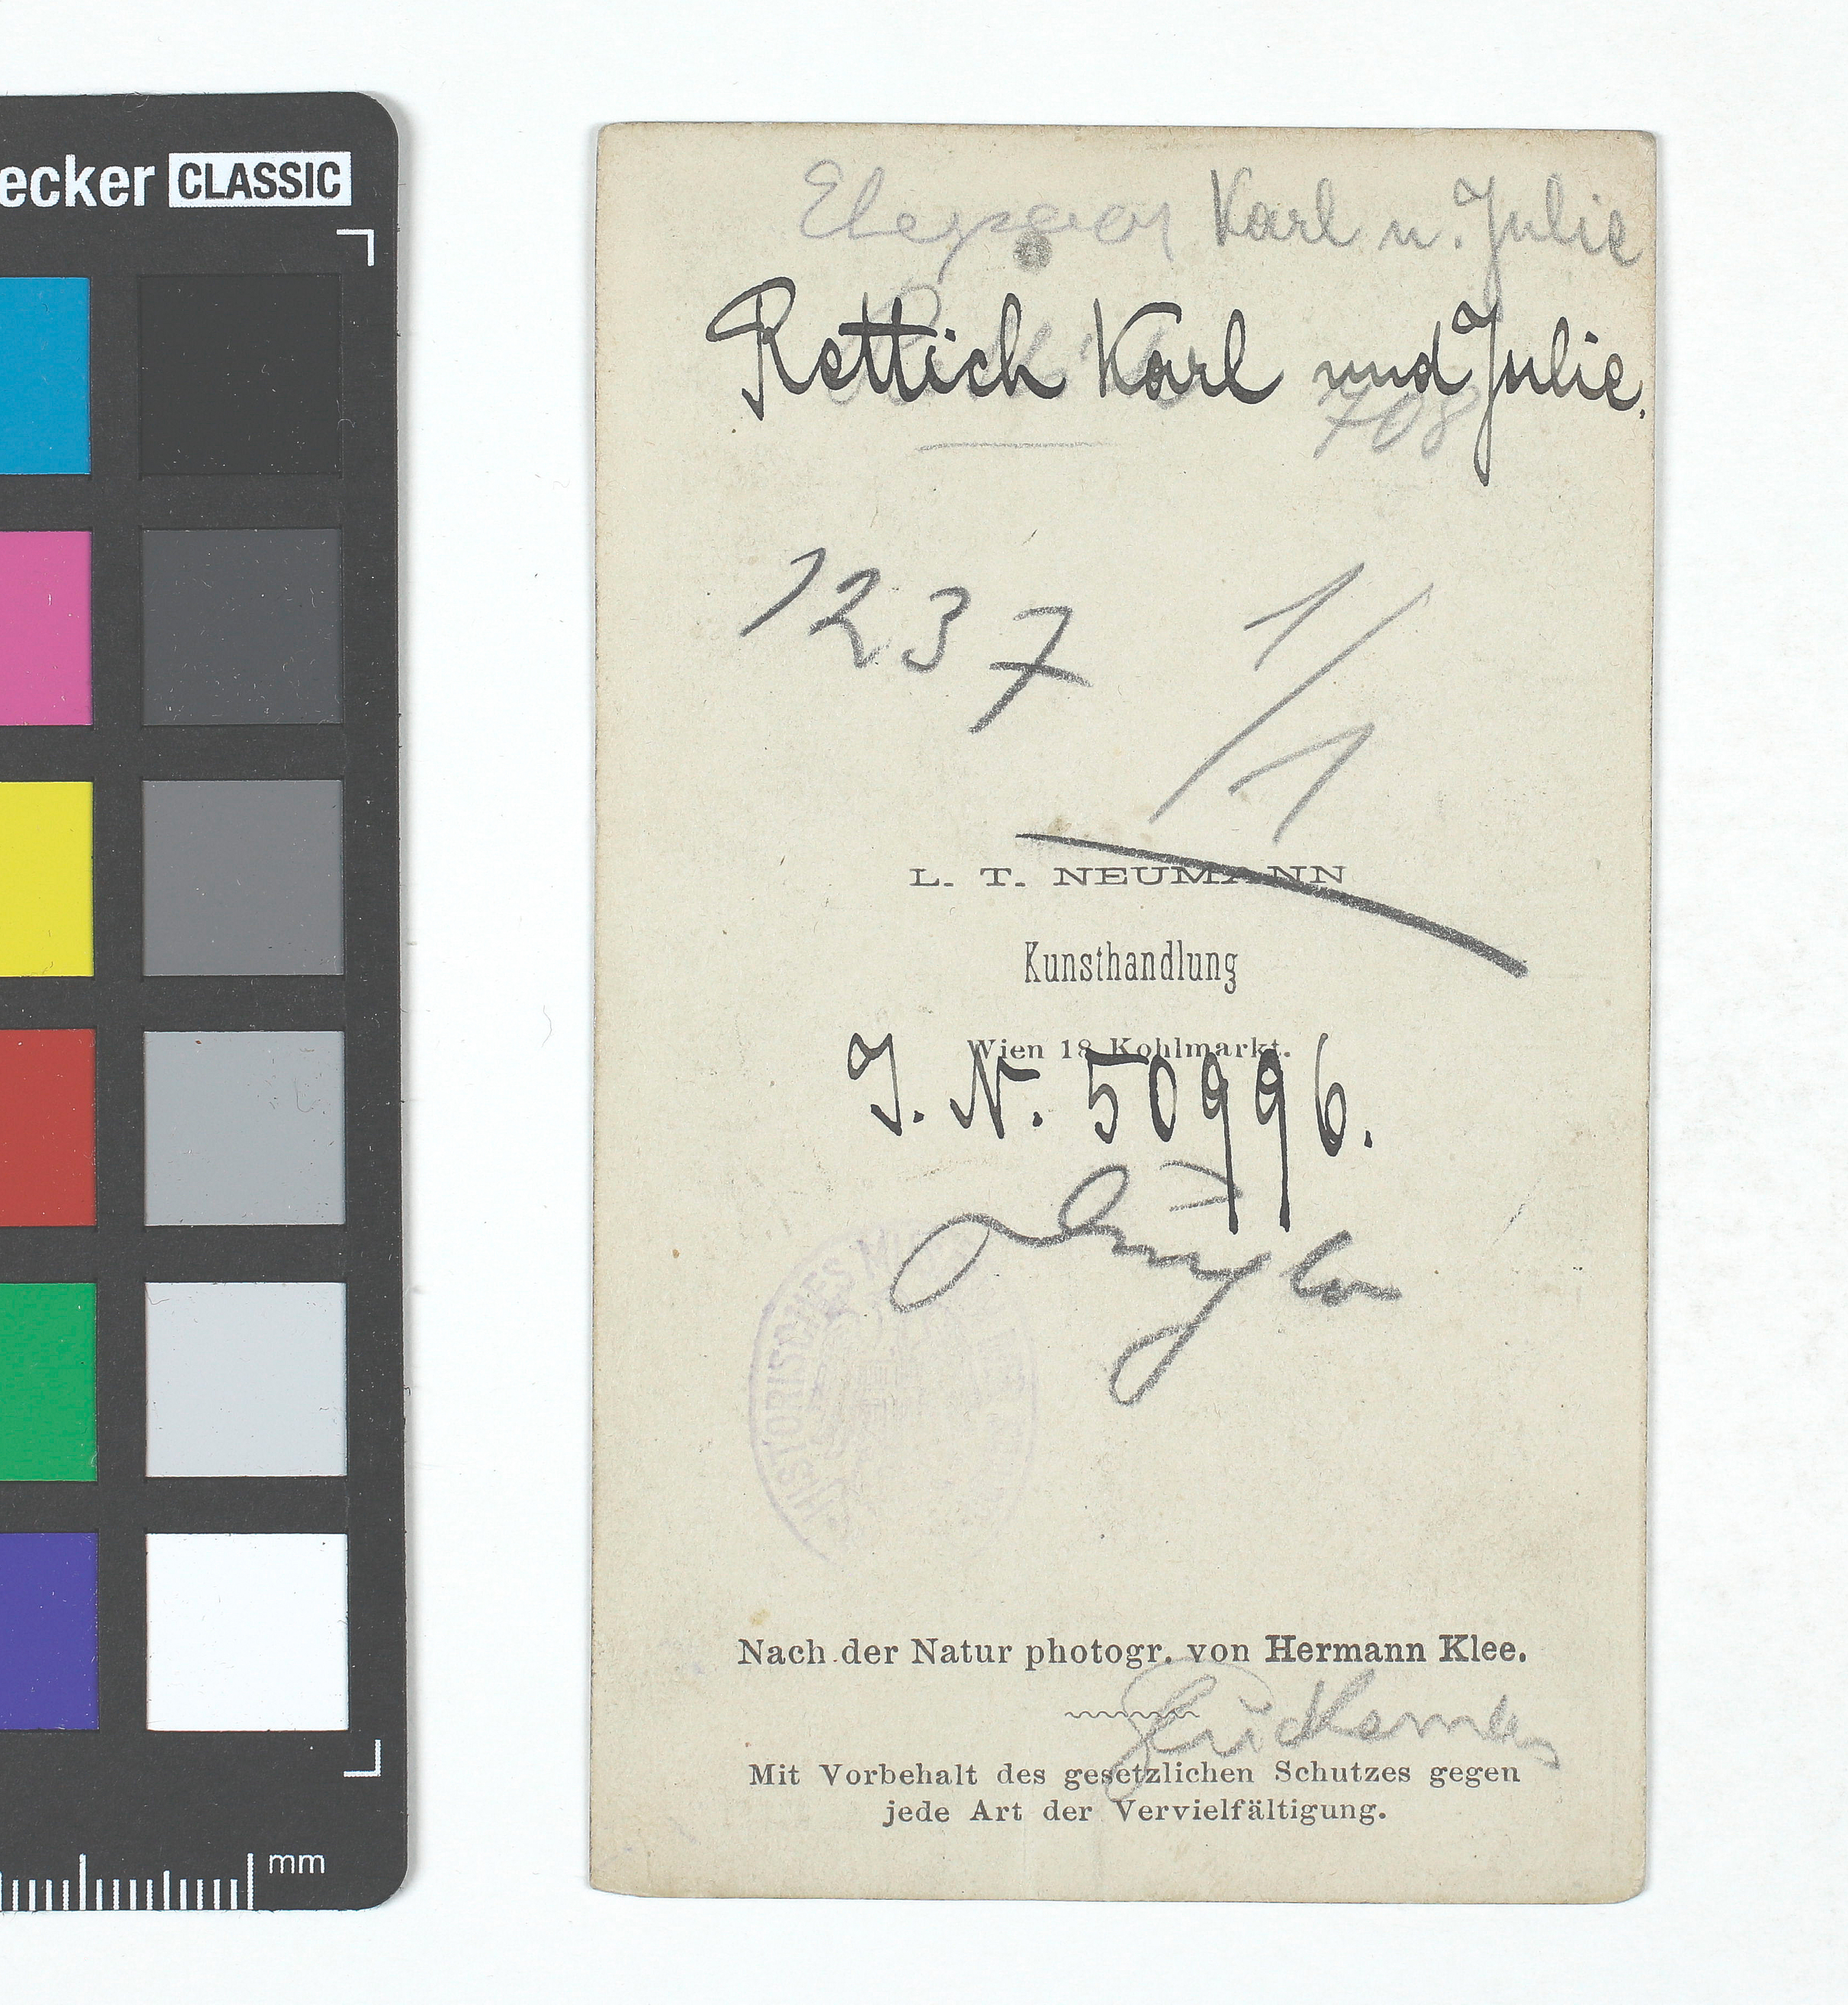 ecker CLASSIC
mm
Ehepaar Karl u. Julie
Rettich Karl und Julie.
708
1237 1/1
L. T. NEUMANN
Kunsthandlung
Wien 18 Kohlmarkt.
J. N. 50996.
HISTORISCHES
Nach der Natur photogr. von Hermann Klee.
Mit Vorbehalt des gesetzlichen Schutzes gegen
jede Art der Vervielfältigung.